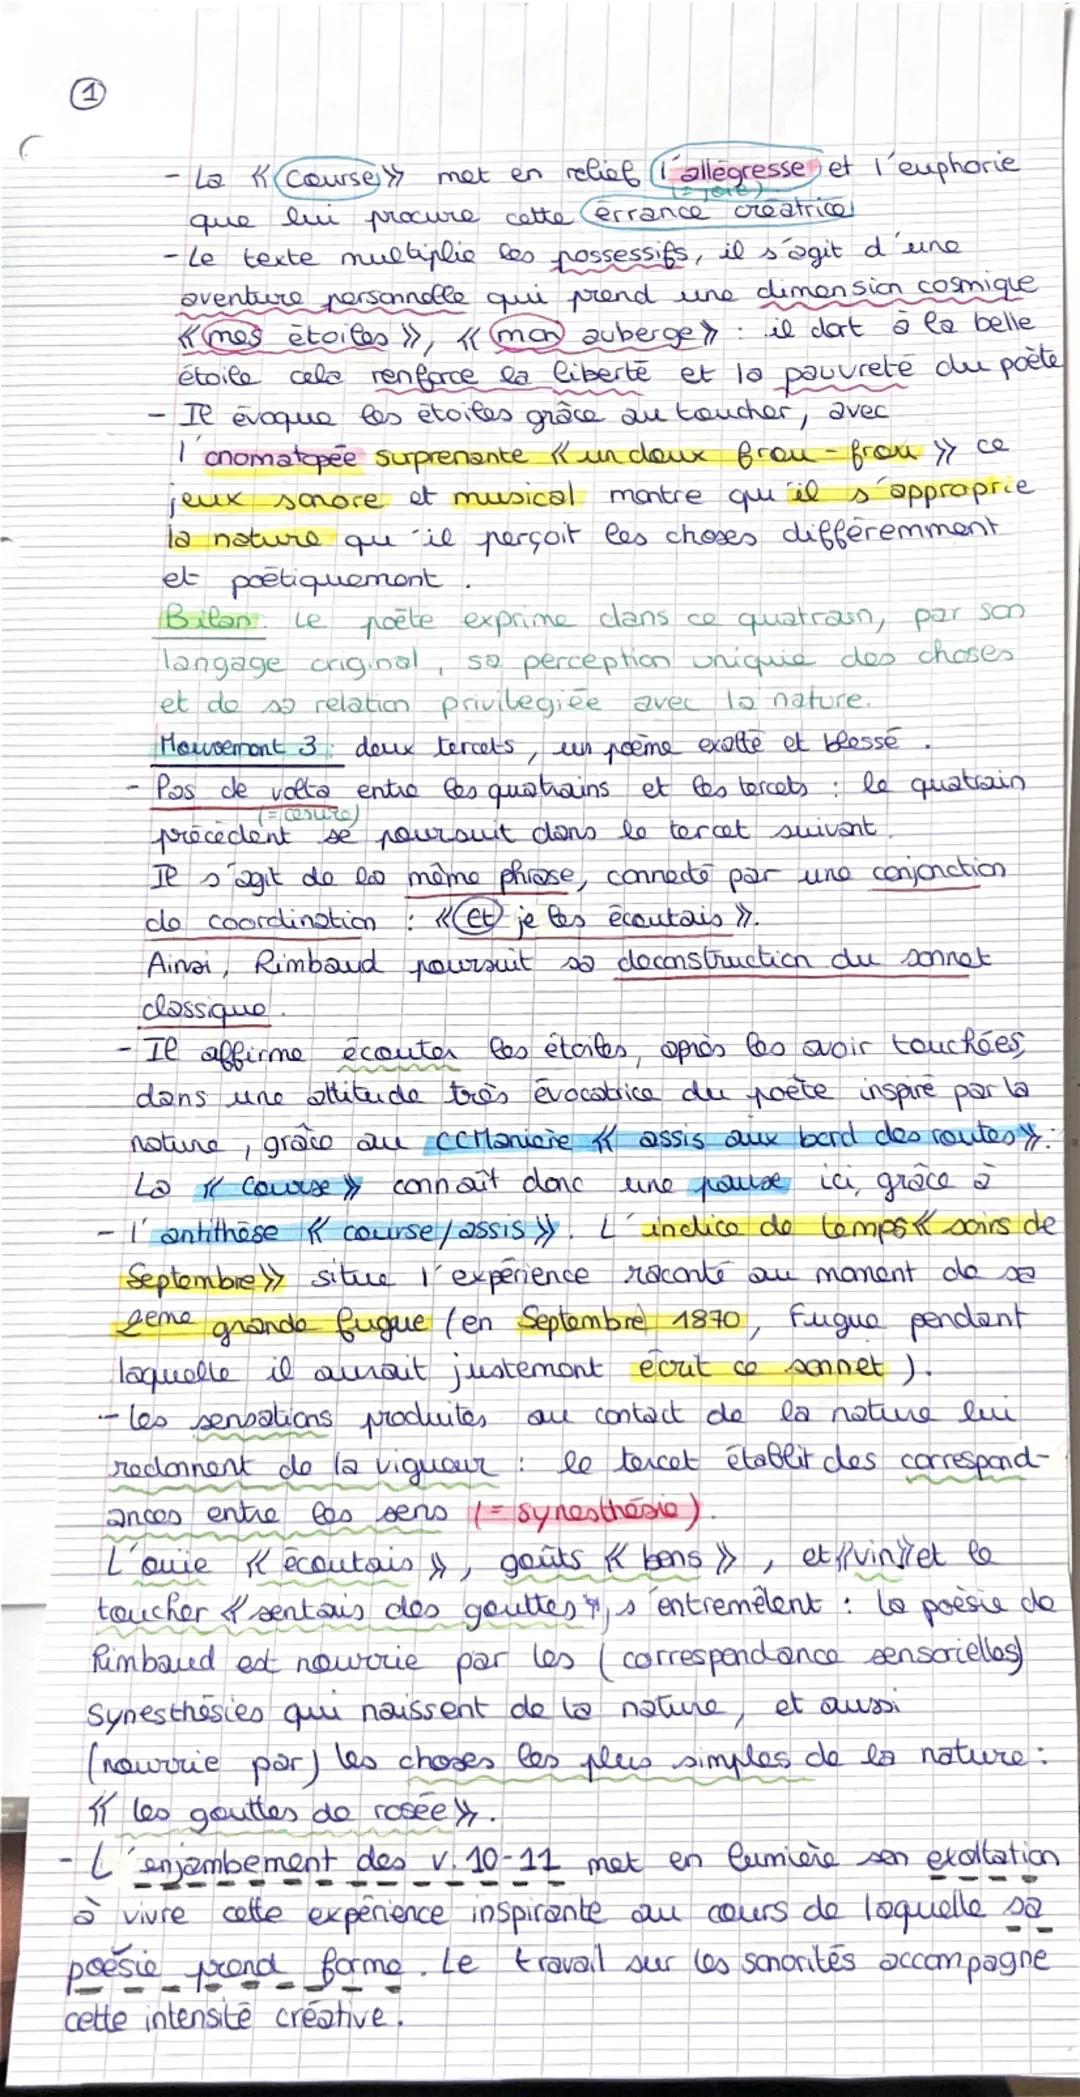 1
- La « Course » met en relief l'allégresse et l'euphorie
(= joie)
que lui procure cette errance créatrice
- Le texte multiplie les possessifs, il s'agit d'une
aventure personnelle qui prend une dimension cosmique
« mes étoiles », « mon auberge » : il dort à la belle
étoile cela renforce la liberté et la pauvreté du poète
- Il évoque les étoiles grâce au toucher, avec
l'onomatopée surprenante « un doux frou-frou » ce
jeux sonore et musical montre qu'il s'approprie
la nature qu'il perçoit les choses différemment
et poétiquement.
Bilan: Le poète exprime dans ce quatrain, par son
langage original, sa perception unique des choses
et de sa relation privilegiée avec la nature.
Mouvement 3 : deux tercets, un poème exalté et blessé.
- Pas de volta entre les quatrains et les tercets : le quatrain
(= césure)
précédent se poursuit dans le tercet suivant.
Il s'agit de la même phrase, connecté par une conjonction
de coordination : « Et je les écoutais ».
Ainsi, Rimbaud poursuit sa deconstruction du sonnet
classique.
- Il affirme écouter les étoiles, après les avoir touchées,
dans une attitude très évocatrice du poète inspiré par la
nature, grâce au CCManière « assis aux bord des routes » :
La « Course » connaît donc une pause ici, grâce à
- l'antithèse « course/assis ». L'indice de temps « soirs de
Septembre » situe l'expérience raconté au moment de sa
2ème grande fugue (en Septembre 1870, Fugue pendant
laquelle il aurait justement écrit ce sonnet).
- Les sensations produites au contact de la nature lui
redonnent de la vigueur : le tercet établit des correspond-
ances entre les sens (= synesthésie).
L'ouïe « écoutais », goûts « bons », et « vin » et le
toucher « sentais des gouttes », s'entremêlent : la poésie de
Rimbaud est nourrie par les (correspondance sensorielles)
Synesthésies qui naissent de la nature, et aussi
(nourrie par) les choses les plus simples de la nature :
« les gouttes de rosée ».
- L'enjambement des v. 10-11 met en lumière son exaltation
à vivre cette expérience inspirante au cours de laquelle sa
poésie prend forme. Le travail sur les sonorités accompagne
cette intensité créative.